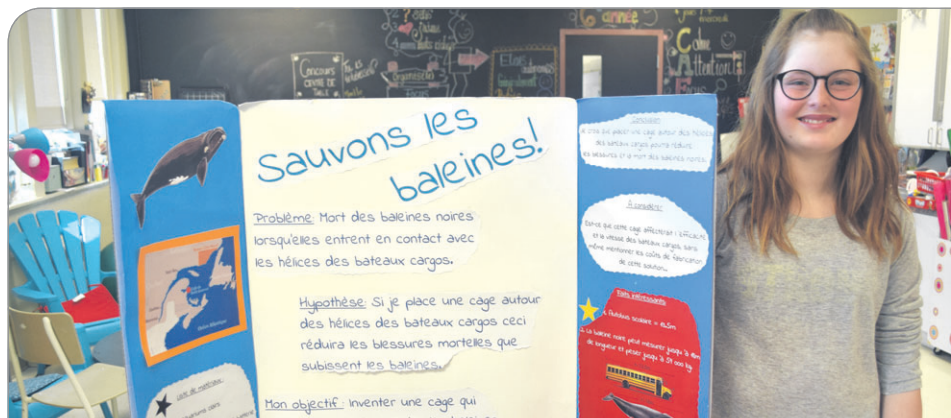 6e année
Concours
Calme
Attention!
Organise(e)
Focus
Sauvons les
baleines!
Problème: Mort des baleines noires
lorsqu'elles entrent en contact avec
les hélices des bateaux cargos.
Hypothèse: Si je place une cage autour
des hélices des bateaux cargos ceci
réduira les blessures mortelles que
subissent les baleines.
Mon objectif: Inventer une cage qui
Liste de matériaux:
Conclusion
Je crois que placer une cage autour des hélices
des bateaux cargos pourra réduire
les blessures et la mort des baleines noires.
À considérer
Est-ce que cette cage affecterait l'efficacité
et la vitesse des bateaux cargos, sans
même mentionner les coûts de fabrication
de cette solution...
Faits intéressants
1 Autobus scolaire =
La baleine noire peut mesurer jusqu'à
de longueur et peser jusqu'à